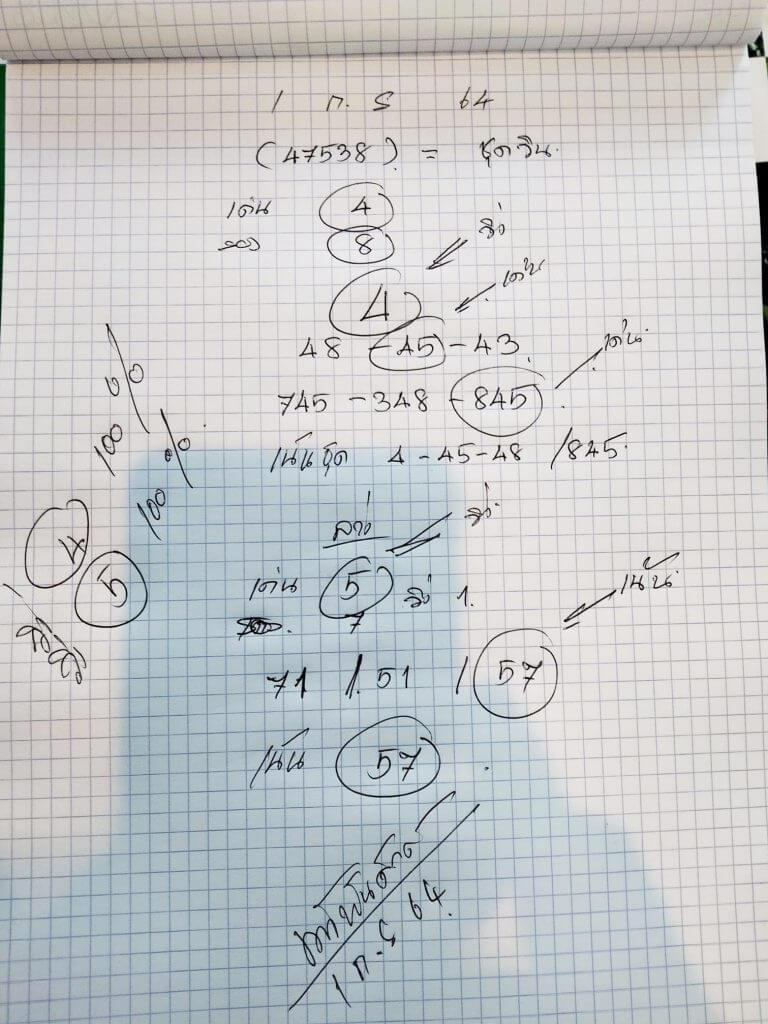 1 ก.ย 64
(47538) = ชุดวิน
เด่น 4
รอง 8
4 วิ่ง
เด่น
48 - 45 - 43
745 - 348 - 845 เด่น
เน้นชุด 4 - 45 - 48 / 845
100 %
100 %
4
5
ล่าง วิ่ง
เด่น 5 วิ่ง 1
7
71 / 51 / 57 เน้น
เน้น 57
1 ก.ย 64